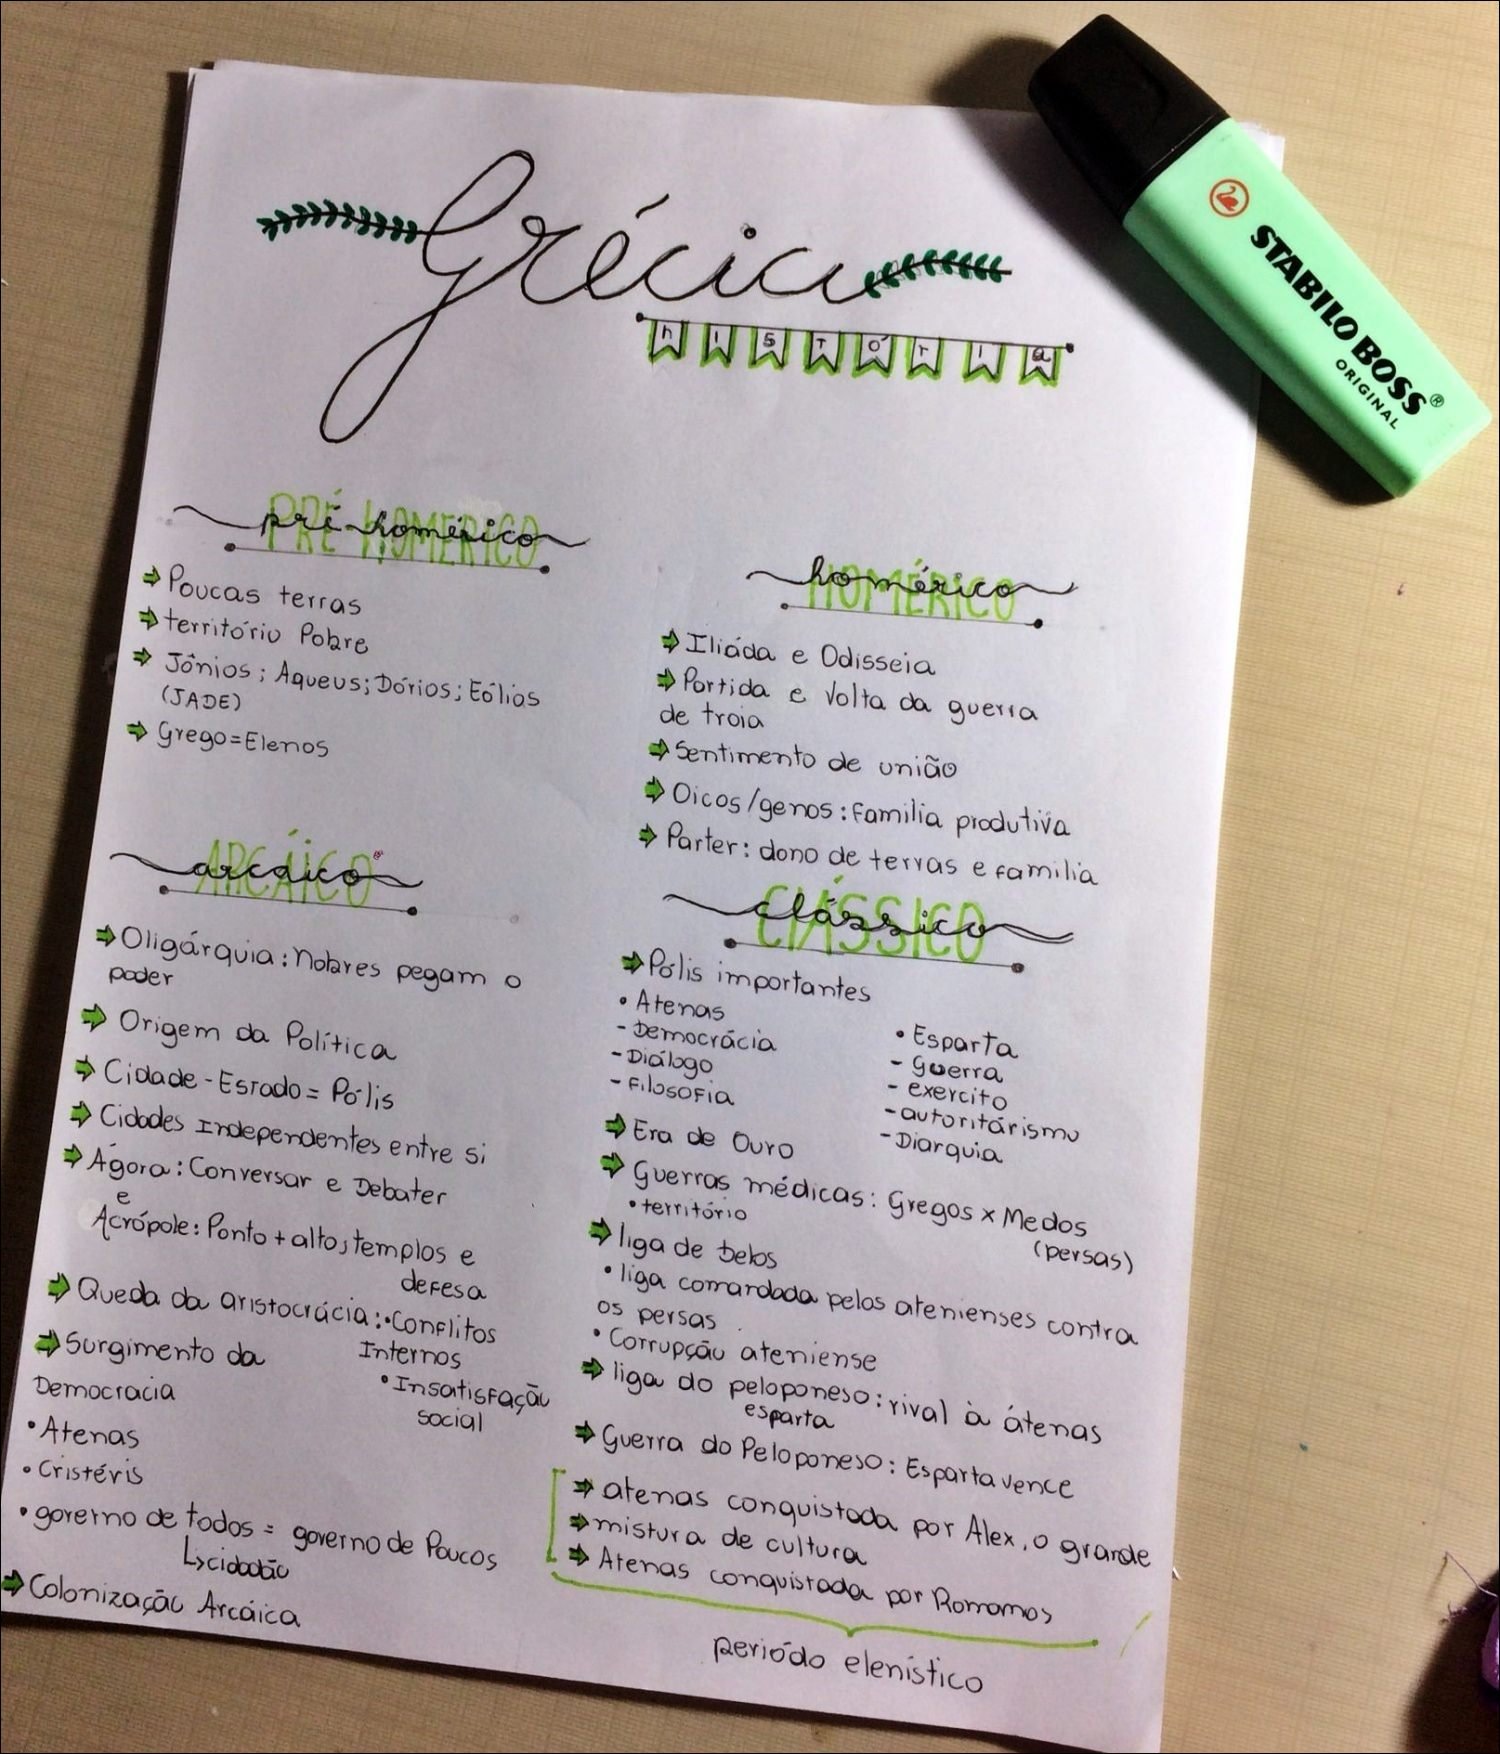 Grécia
história
PRÉ HOMÉRICO
pré-homérico
Poucas terras
território Pobre
Jônios; Aqueus; Dórios; Eólios
(JADE)
Grego=Elenos
HOMÉRICO
homérico
Ilíada e Odisseia
Partida e Volta da guerra
de troia
Sentimento de união
Oicos/genos: Familia produtiva
Parter: dono de terras e familia
ARCÁICO
arcaico
Oligárquia: Nobres pegam o
poder
Origem da Política
Cidade-Estado = Pólis
Cidades Independentes entre si
Ágora: Conversar e Debater
e
Acrópole: Ponto + alto, templos e
defesa
Queda da aristocrácia: •Conflitos
Internos
•Insatisfação
social
Surgimento da
Democracia
•Atenas
•Cristéris
•governo de todos = governo de Poucos
cidadão
Colonização Arcáica
CLÁSSICO
clássico
Pólis importantes
•Atenas
-Democrácia
-Diálogo
-Filosofia
•Esparta
-guerra
-exercito
-autoritárismo
-Diarquia
Era de Ouro
Guerras médicas: Gregos x Medos
(persas)
•território
liga de Delos
•liga comandada pelos atenienses contra
os persas
•Corrupção ateniense
liga do peloponeso: rival à átenas
esparta
Guerra do Peloponeso: Esparta vence
atenas conquistada por Alex, o grande
mistura de cultura
Atenas conquistada por Romanos
periódo elenístico
STABILO BOSS®
ORIGINAL